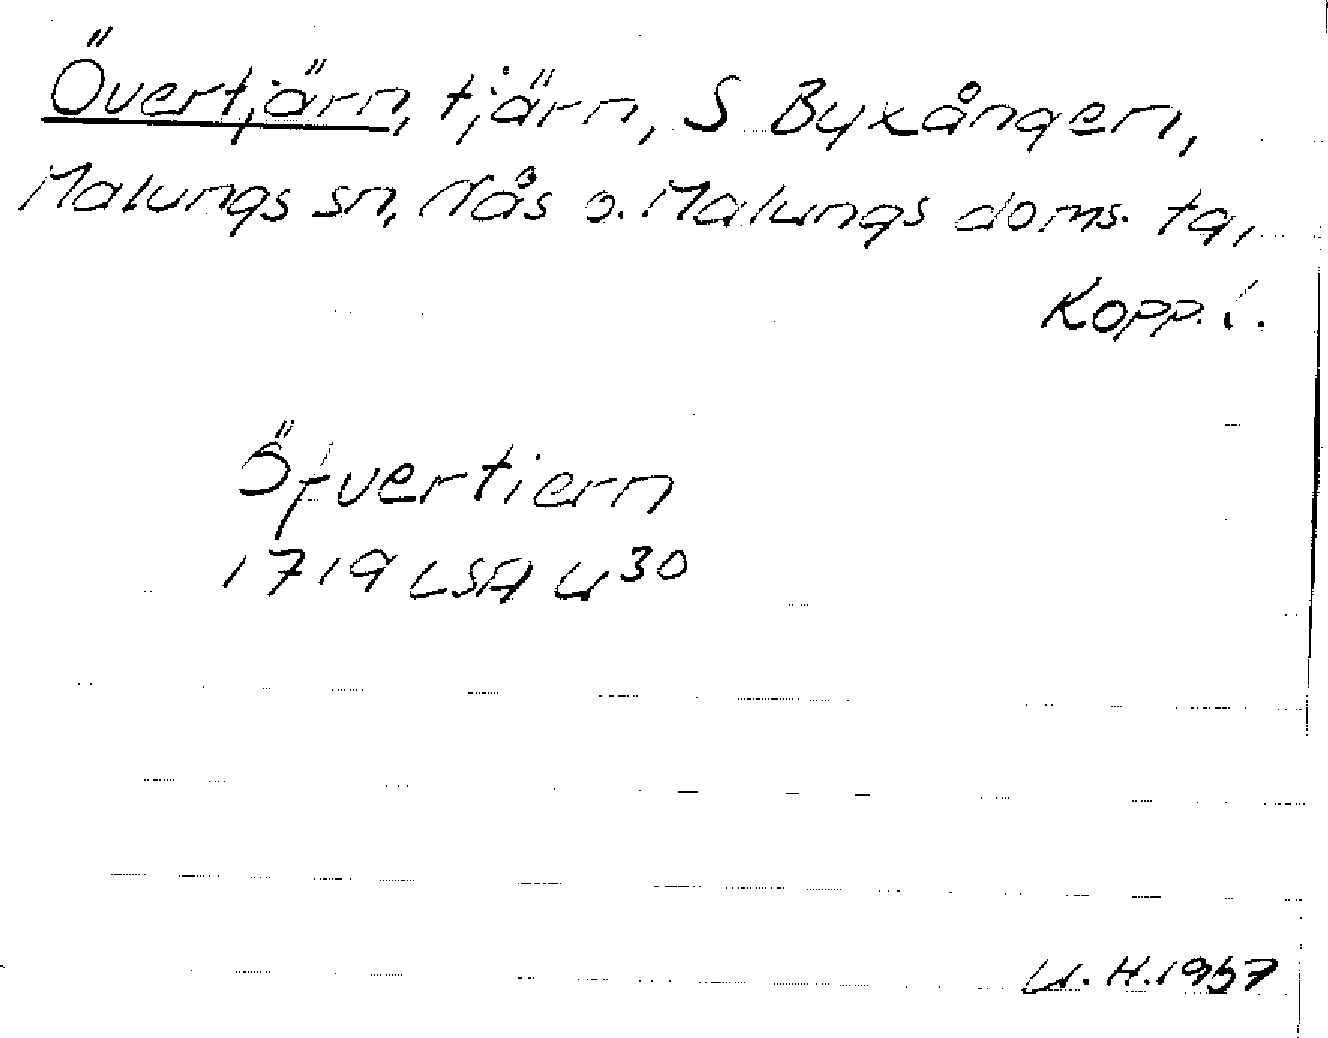 Övertjärn, tjärn, S Byxången,
Malungs sn, Nås o. Malungs doms. tg,
Kopp. l.
Öfvertiern
1719 LSA U30
U. H. 1957